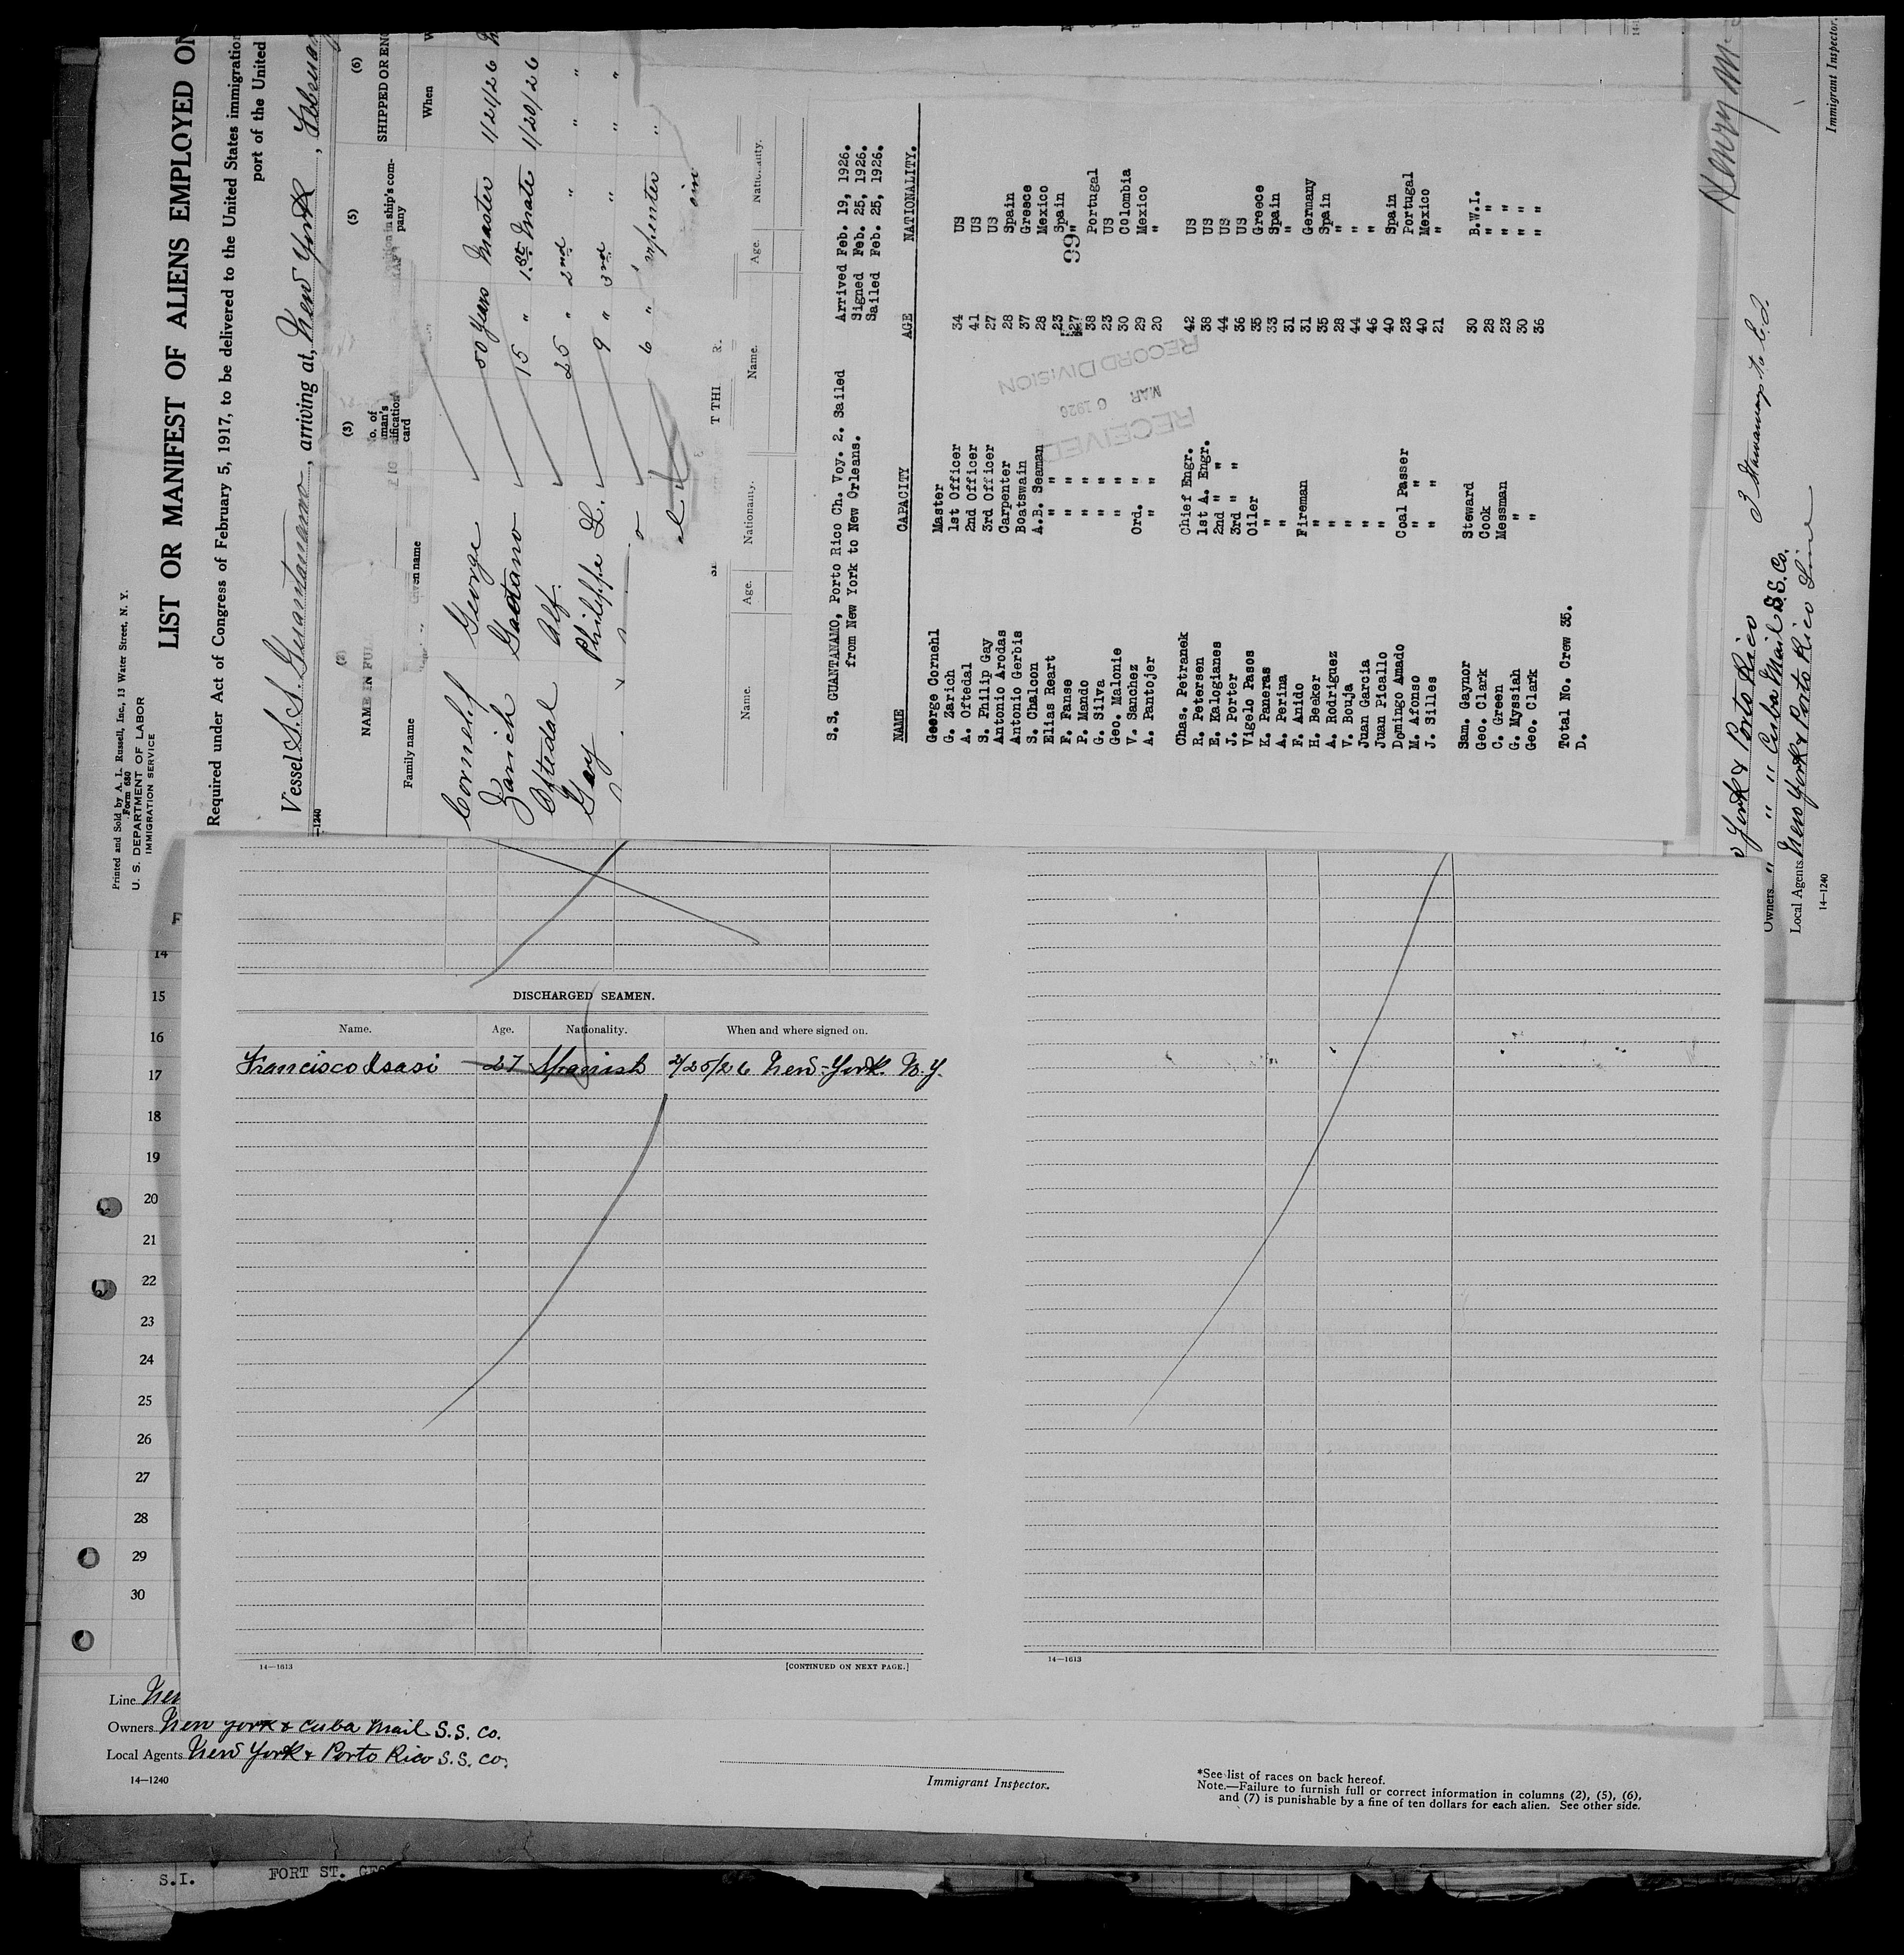 Printed and Sold by A. L. Russell, Inc., 13 Water Street, N. Y.
Form 680
U. S. DEPARTMENT OF LABOR
IMMIGRATION SERVICE
LIST OR MANIFEST OF ALIENS EMPLOYED ON
Required under Act of Congress of February 5, 1917, to be delivered to the United States immigration
port of the United
Vessel S.S. Guantanamo, arriving at New York,
14—1240
(2) (3) (5) (6)
NAME IN FUL
SHIPPED OR ENG
Family name Given name When
No. of
card
in ship's com-
pany
Cornehl George 30 Years Master 1/21/26
Zarich Gaetano 15 " 1st Mate 1/20/26
Oftedal Alf. 25 " 2nd " "
Gay Philippe L. 9 " 3rd " "
6 " "
Name. Age. Nationality. Name. Age. Nationality.
S.S. GUANTANAMO, Porto Rico Ch. Voy. 2. Sailed
from New York to New Orleans.
Arrived Feb. 19, 1926.
Signed Feb. 25, 1926.
Sailed Feb. 25, 1926.
NAME CAPACITY AGE NATIONALITY.
George Cornehl Master 34 US
G. Zarich 1st Officer 41 US
A. Oftedal 2nd Officer 27 US
S. Philip Gay 3rd Officer 28 Spain
Antonio Arodas Carpenter 37 Greece
Antonio Gerbis Boatswain 28 Mexico
S. Chalcon A.B. Seaman 23 Spain
Elias Reart " " 27 "
F. Fanse " " 38 Portugal
P. Mando " " 23 US
G. Silva " " 30 Colombia
Geo. Malonie " " 29 Mexico
V. Sanchez Ord. " 20 "
A. Pantojer " "
99
Chas. Petranek Chief Engr. 42 US
R. Petersen 1st A. Engr. 38 US
E. Kalogianes 2nd " " 44 US
J. Porter 3rd " " 36 US
Vigelo Pasos Oiler 35 Greece
K. Paneras " 33 Spain
A. Perina " 31 "
F. Anido Fireman 31 Germany
H. Beeker " 35 Spain
A. Rodriguez " 28 "
V. Bouja " 44 "
Juan Garcia " 46 "
Juan Picallo " 40 Spain
Domingo Amado Coal Passer 23 Portugal
M. Afonso " " 40 Mexico
J. Silles " " 21 "
Sam. Gaynor Steward 30 B.W.I.
Geo. Clark Cook 28 " "
C. Green Messman 23 " "
G. Myssiah " 30 " "
Geo. Clark " 36 " "
Total No. Crew 35.
D.
RECEIVED
MAR 6 1926
RECORD DIVISION
York & Porto Rico
Owners " " " Cuba Mail S.S. Co.
Local Agents New York & Porto Rico Line
14—1240
Henry M.
Immigrant Inspector.
14
15
16
17
18
19
20
21
22
23
24
25
26
27
28
29
30
DISCHARGED SEAMEN.
Name. Age. Nationality. When and where signed on.
Francisco Isasi 27 Spanish 2/25/26 New-York. N.Y.
14—1613
[CONTINUED ON NEXT PAGE.]
14—1613
Line New
Owners New York & Cuba Mail S.S. Co.
Local Agents New York & Porto Rico S.S. Co.
14—1240
Immigrant Inspector.
*See list of races on back hereof.
Note.—Failure to furnish full or correct information in columns (2), (5), (6),
and (7) is punishable by a fine of ten dollars for each alien. See other side.
S.I. FORT ST.